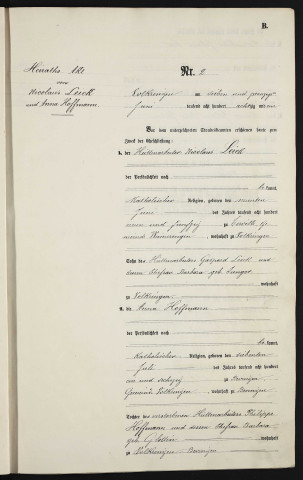 B.
Heiraths Akt
von
Nicolaus Lieck
und Anna Hoffmann.
Nr. 2
Volkringen am sieben und zwanzigsten
Juni tausend acht hundert achtzig und
Vor dem unterzeichneten Standesbeamten erschienen heute zum
Zweck der Eheschließung:
1. der Hüttenarbeiter Nicolaus Lieck
der Persönlichkeit nach
kannt,
Katholischer Religion, geboren den neunten
Juni des Jahres tausend acht hundert
neun und fünfzig zu
, wohnhaft zu Volkringen
Sohn des Hüttenarbeiters Gaspard Lieck und
dessen Ehefrau Barbara geb.
wohnhaft
zu Volkringen.
2. die Anna Hoffmann
der Persönlichkeit nach
kannt,
Katholischer Religion, geboren den siebenten
Juli des Jahres tausend acht hundert
ein und sechzig zu Bevingen
Gemeinde Volkringen, wohnhaft zu Bevingen
Tochter des verstorbenen Hüttenarbeiters Philippe
Hoffmann und dessen Ehefrau Barbara
geb. wohnhaft
zu Volkringen Bevingen